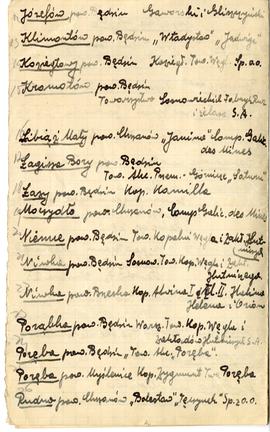 Józefów pow. Będzin Gaworski i Gliszczyński
Klimontów pow. Będzin „Władysław" „Jadwiga"
Koziegłowy pow. Będzin Koziegł. Tow. Węgl. Sp. z o.o.
Kramołów pow. Będzin
Towarzystwo Sosnowieckich Fabryk Rur
i żelaza S.A.
Libiąż Mały pow. Chrzanów „Janina" Comp. Galic.
des Mines
Łagisza Bory pow. Będzin
Tow. Akc. Przem. Górnicz. „Saturn"
Łazy pow. Będzin Kop. Kamilla
Moczydło pow. Chrzanów, Comp. Galic. des Mines
Niemce pow. Będzin Tow. Kopalni Węgla i Zakł. Hut-
niczych
Niwka pow. Będzin Sosnow. Tow. Kop. Węgla i Zakł.
Hutniczych
Niwka pow. Kop. Alwina I i II, Halina
Helena i Orion
Porąbka pow. Będzin Warsz. Tow. Kop. Węgla i
Zakładów Hutniczych S.A.
Poręba pow. Będzin „Tow. Akc. Poręba"
Poręba pow. Myślenice Kop. Zygmunt Tow. Poręba
Rudno pow. Chrzanów „Bolesław" „Tęczynek" Sp. z o.o.